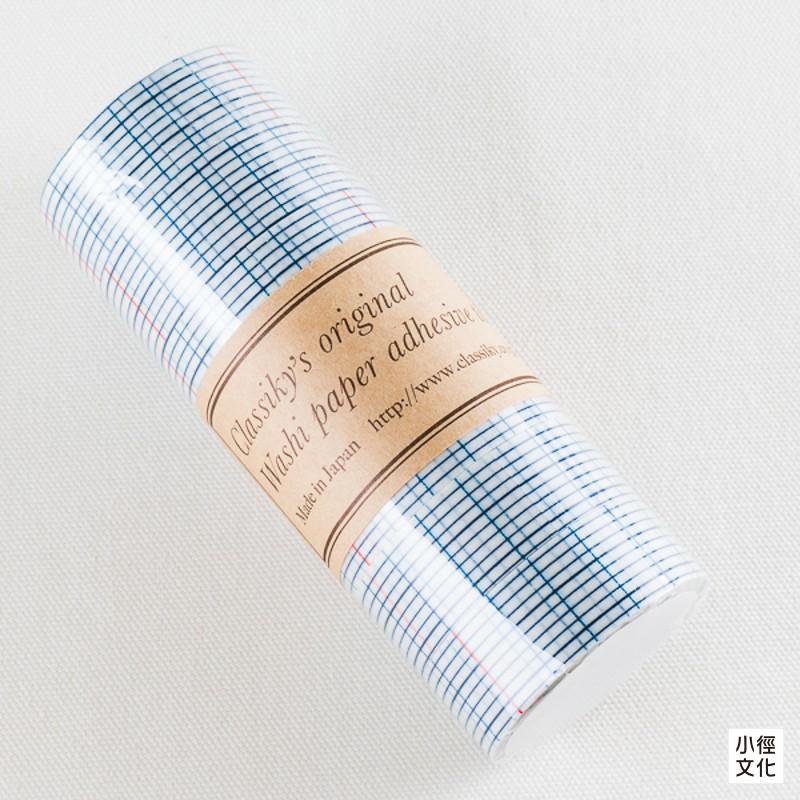 Classiky's original
Washi paper adhesive
Made in Japan http://www.classiky
小徑
文化